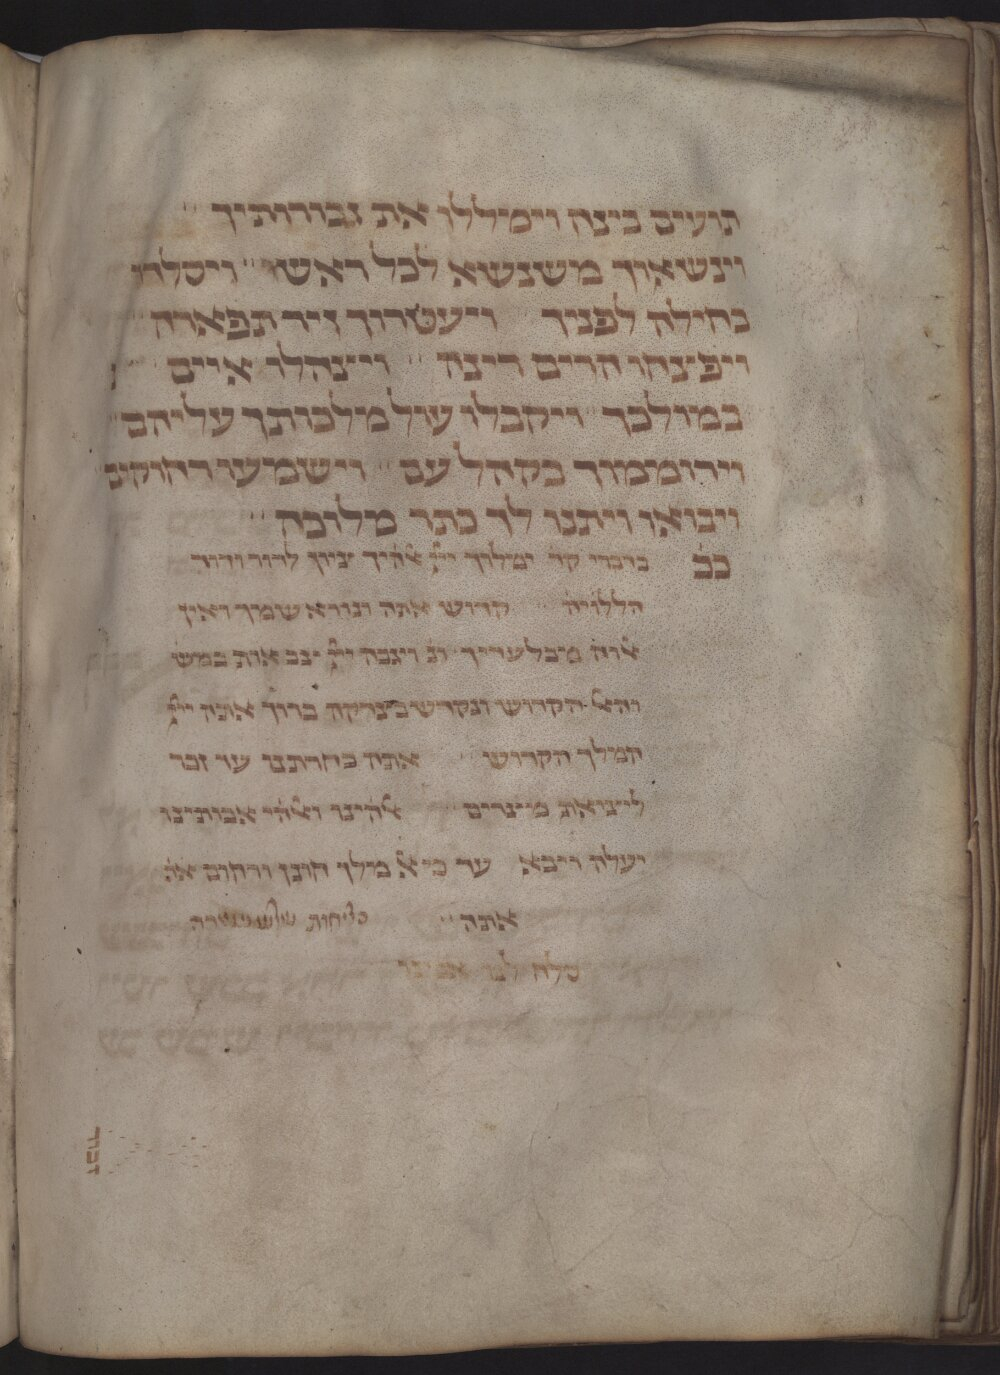 תועים בינה וימללו את גבורותיך
וינשאוך משנשא לכל ראש וי׳ ויסלדו
בחילה לפניך ויעטרוך נזר תפארה
ויפצחו הרים רינה ויצהלו איים
במולכך ויקבלו עול מלכותך עליהם
וירוממוך בקהל עם וישמעו רחוקים
ויבואו ויתנו לך כתר מלוכה
ככ בדברי קד׳ ימלוך ייי אלהיך ציון לדור ודור
הללויה קדוש אתה ונורא שמך ואין
אלוה מבלעדיך ונ׳ ויגבה ייי צבאות במש׳
והאל הקדוש ונקדש בצדקה ברוך אתה ייי
המלך הקדוש אתה בחרתנו עד זכר
ליציאת מצרים אלהינו ואלהי אבותינו
יעלה ויבא עד כי אל מלך חנון ורחום את׳
אתה סליחות שלש עשרה
סלח לנו אבינו